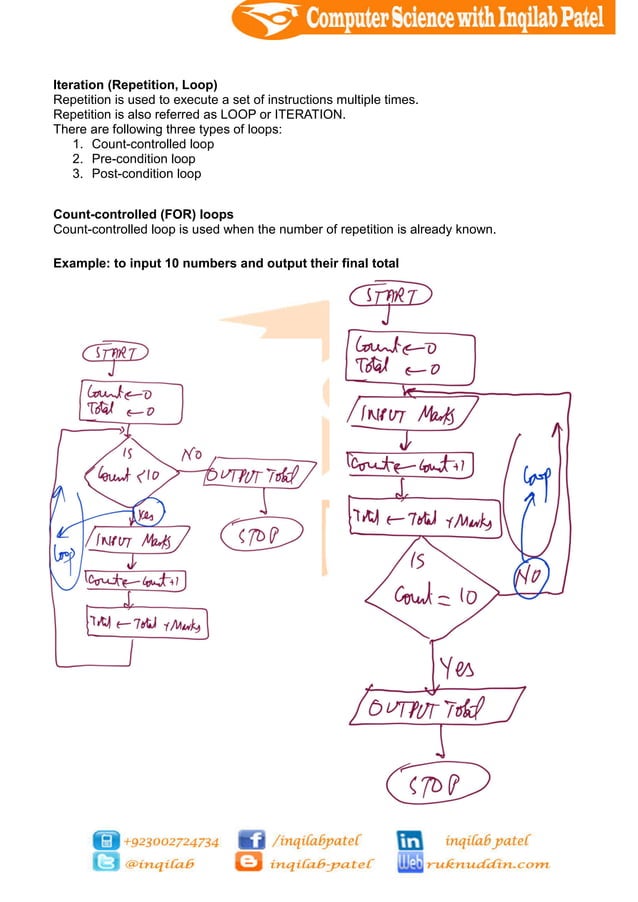 Computer Science with Inqilab Patel
Iteration (Repetition, Loop)
Repetition is used to execute a set of instructions multiple times.
Repetition is also referred as LOOP or ITERATION.
There are following three types of loops:
1. Count-controlled loop
2. Pre-condition loop
3. Post-condition loop
Count-controlled (FOR) loops
Count-controlled loop is used when the number of repetition is already known.
Example: to input 10 numbers and output their final total
START
Count ← 0
Total ← 0
IS
Count < 10
NO
OUTPUT Total
STOP
Yes
Loop
INPUT Marks
Count ← Count + 1
Total ← Total + Marks
START
Count ← 0
Total ← 0
INPUT Marks
Count ← Count + 1
Total ← Total + Marks
Loop
IS
Count = 10
NO
Yes
OUTPUT Total
STOP
+923002724734 /inqilabpatel inqilab patel
@inqilab inqilab-patel Web ruknuddin.com